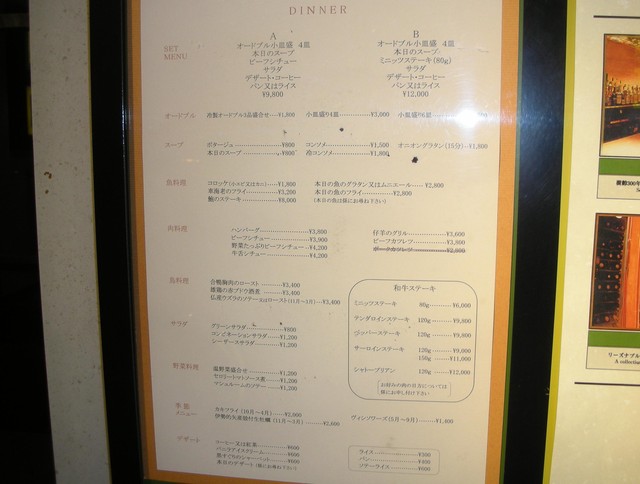 DINNER
SET
MENU
A
オードブル小皿盛 4皿
本日のスープ
ビーフシチュー
サラダ
デザート・コーヒー
パン又はライス
¥9,800
B
オードブル小皿盛 4皿
本日のスープ
ミニッツステーキ(80g)
サラダ
デザート・コーヒー
パン又はライス
¥12,000
オードブル
冷製オードブル3品盛合せ…¥1,800
小皿盛り4皿…………¥3,000
小皿盛り6皿
スープ
ポタージュ………………¥800
本日のスープ……………¥800
コンソメ………………¥1,500
冷コンソメ……………¥1,800
オニオングラタン(15分)…¥1,800
魚料理
コロッケ(小エビ又はカニ)…¥1,800
車海老のフライ…………¥3,200
鮑のステーキ……………¥8,000
本日の魚のグラタン又はムニエール…… ¥2,800
本日の魚のフライ………… ¥2,800
(本日の魚は係にお尋ね下さい)
肉料理
ハンバーグ………………¥3,800
ビーフシチュー…………¥3,900
野菜たっぷりビーフシチュー…¥4,200
牛舌シチュー……………¥4,200
仔羊のグリル…………¥3,600
ビーフカツレツ………¥3,800
ポークカツレツ………¥2,000
鳥料理
合鴨胸肉のロースト ……¥3,400
雛鶏の赤ブドウ酒煮 ……¥3,400
仏産ウズラのソテー又はロースト(11月〜3月)…¥3,400
サラダ
グリーンサラダ…………¥800
コンビネーションサラダ…¥1,200
シーザースサラダ………¥1,200
野菜料理
温野菜盛合せ……………¥1,200
セロリートマトソース煮…¥1,200
マシュルームのソテー……¥1,200
和牛ステーキ
ミニッツステーキ 80g………¥6,000
マンダロインステーキ 120g………¥9,800
ジッパーステーキ 120g………¥9,800
サーロインステーキ 120g………¥9,000
150g………¥11,000
シャトーブリアン 120g………¥12,000
お好みの肉の目方については
係にお申し付け下さい
季節
メニュー
カキフライ(10月〜4月)……¥2,000
伊勢的矢産殻付生牡蠣(11月〜3月)……¥2,600
ヴィシソワーズ(5月〜9月)……¥1,400
デザート
コーヒー又は紅茶…………¥600
バニラアイスクリーム……¥600
黒すぐりのシャーベット…¥600
本日のデザート(係にお尋ね下さい)
ライス………………¥300
パン…………………¥400
ツケーライス………¥600
リーズナブル
A collection